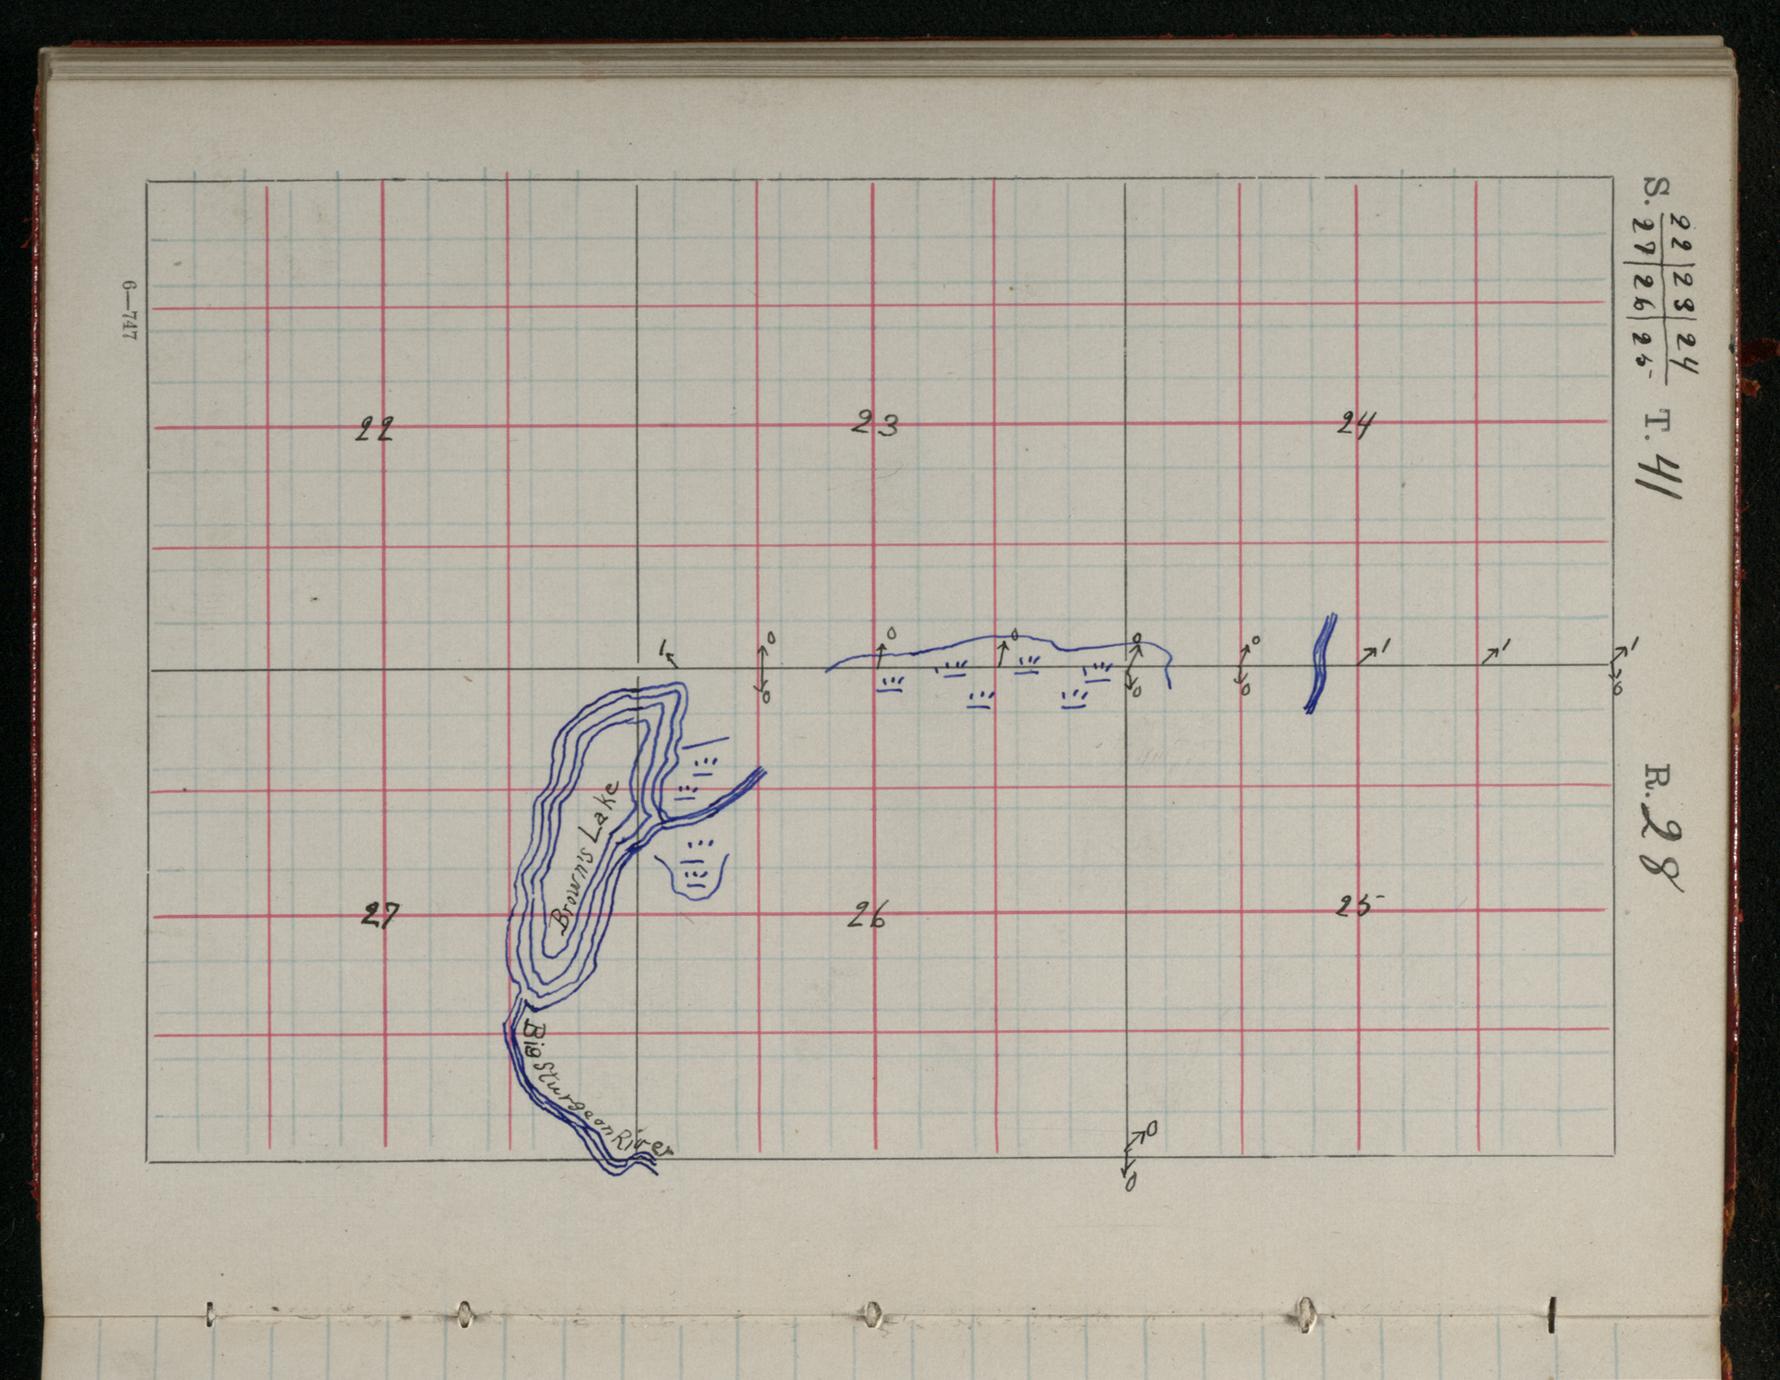 S. 22|23|24
27|26|25
T. 41
R. 28
6—747
22
23
24
1
0
0
0
0
0
1
1
1
0
0
0
0
Brown's Lake
27
26
25
Big Sturgeon River
0
0